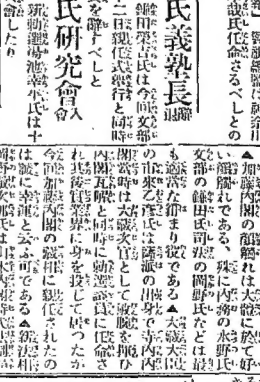 哉氏任命さるべしとの
氏義塾長
鎌田榮吉氏は今回文部
二日親任式擧行と同時
を辭すべしと
氏研究會
入會
新勅選湯池幸平氏は十
會したり
▲加藤內閣の顏觸れは大體に於て好
い顏觸れである、殊に內務の水野氏
文部の鎌田氏司法の岡野氏などは最
も適當な嵌まり役である▲大藏大臣
の市來乙彥氏は薩派の出身で寺內內
閣當時は大藏次官として敏腕を揮ひ
內閣瓦解と同時に勅選議員に任命さ
れ其後官業界に身を投じて居つたが
今回加藤內閣の藏相に親任されたの
は誠に幸運と云ふ可である▲新法相